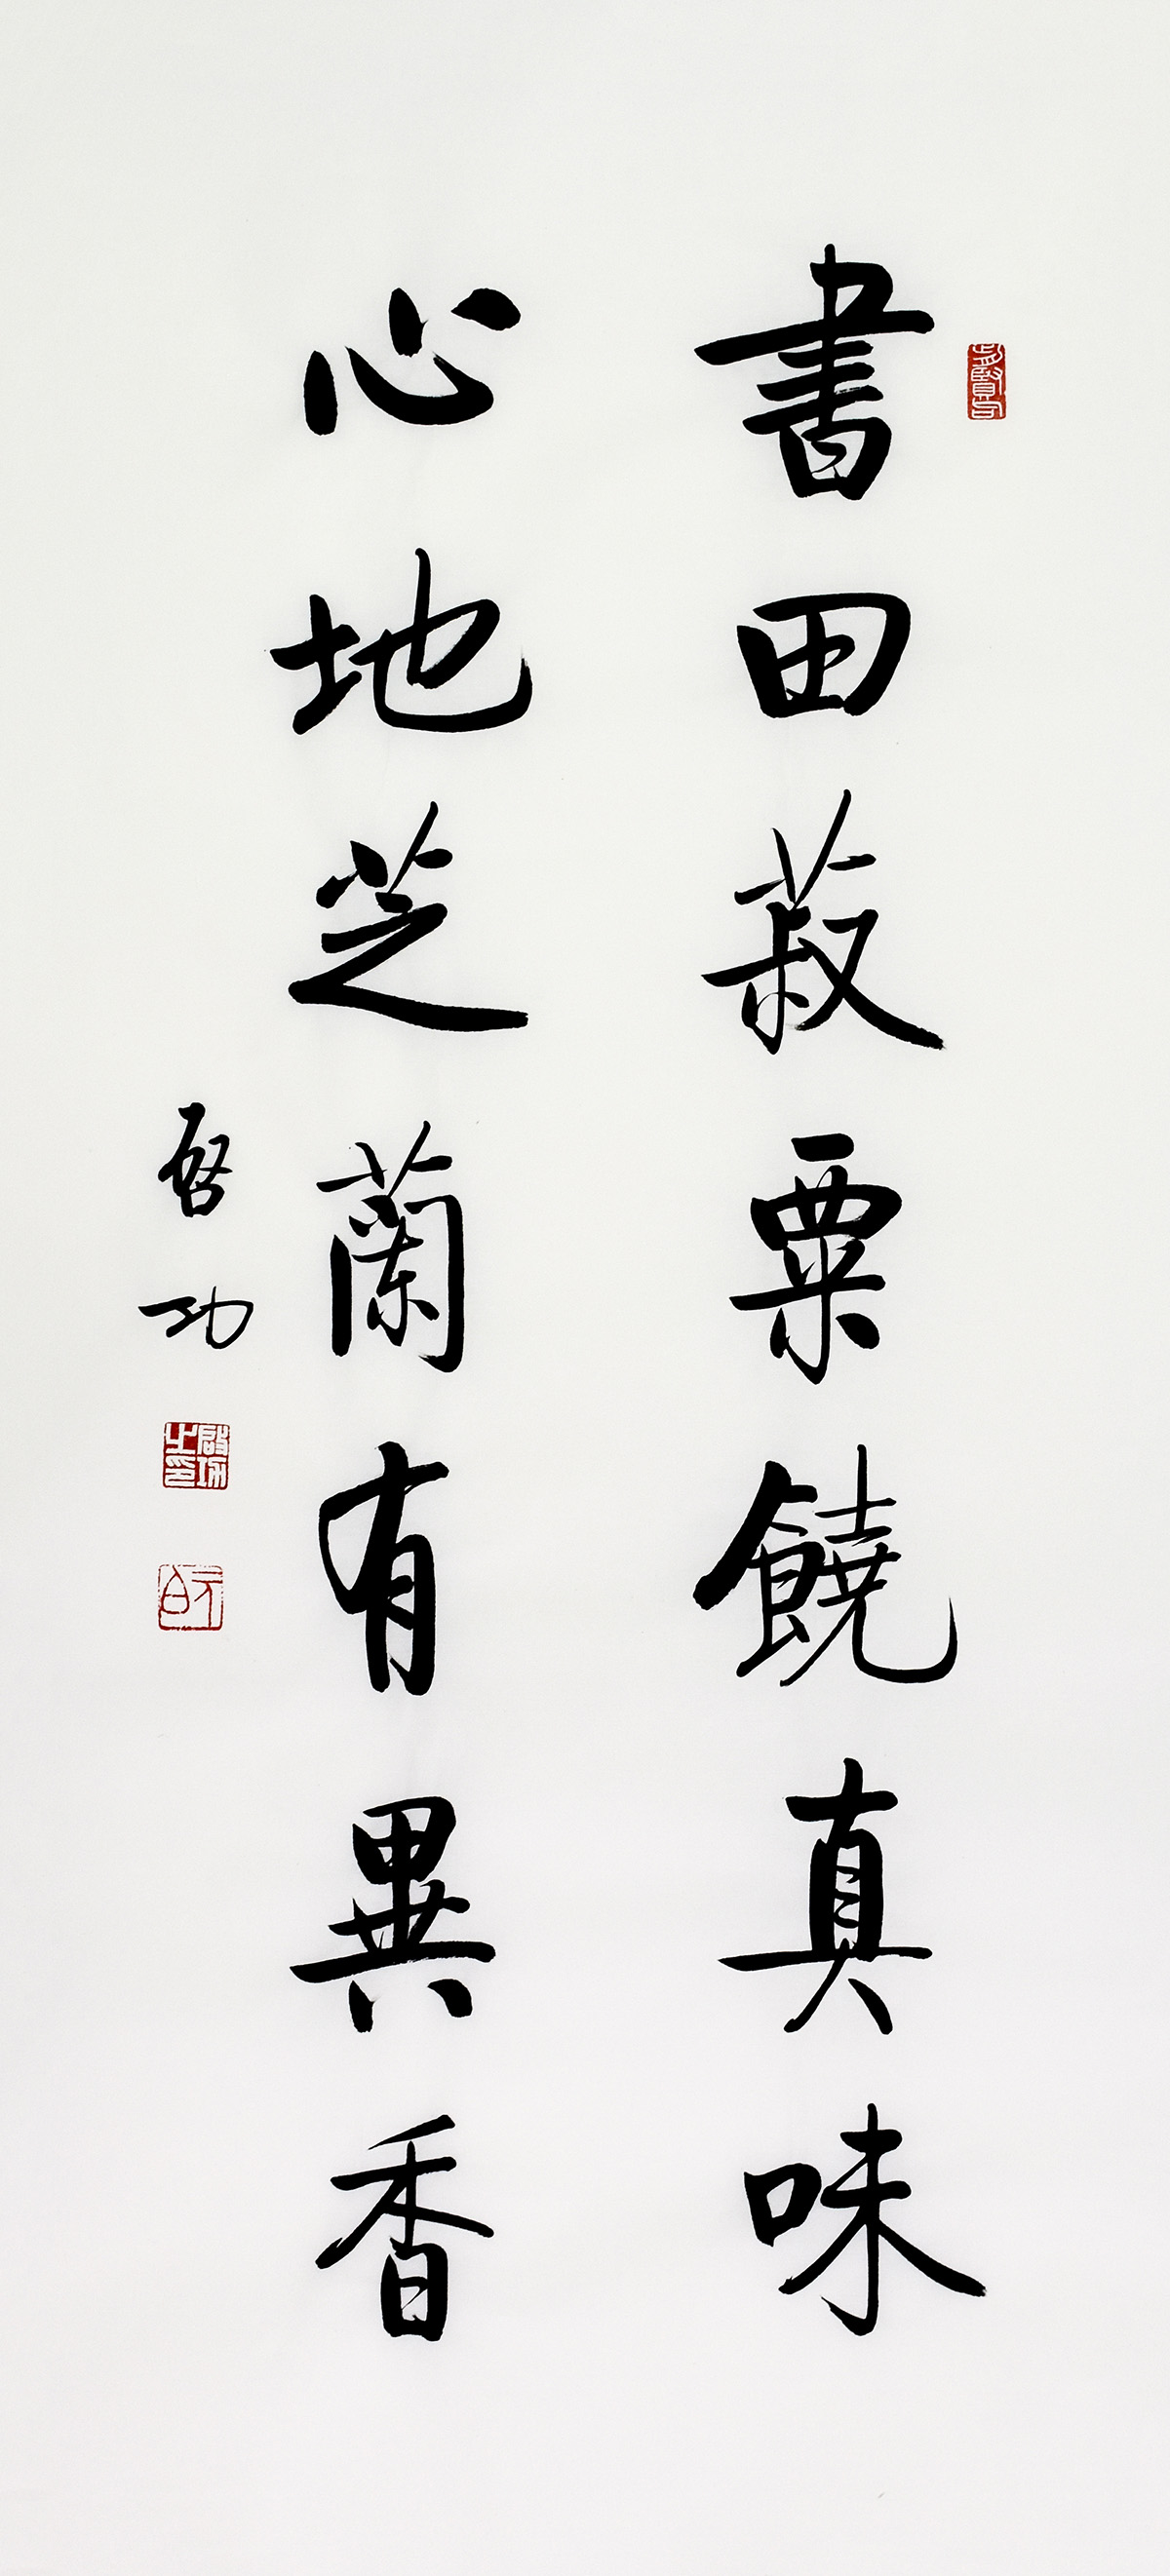 書田菽粟饒真味
心地芝蘭有異香
啓功
啟功之印
元白